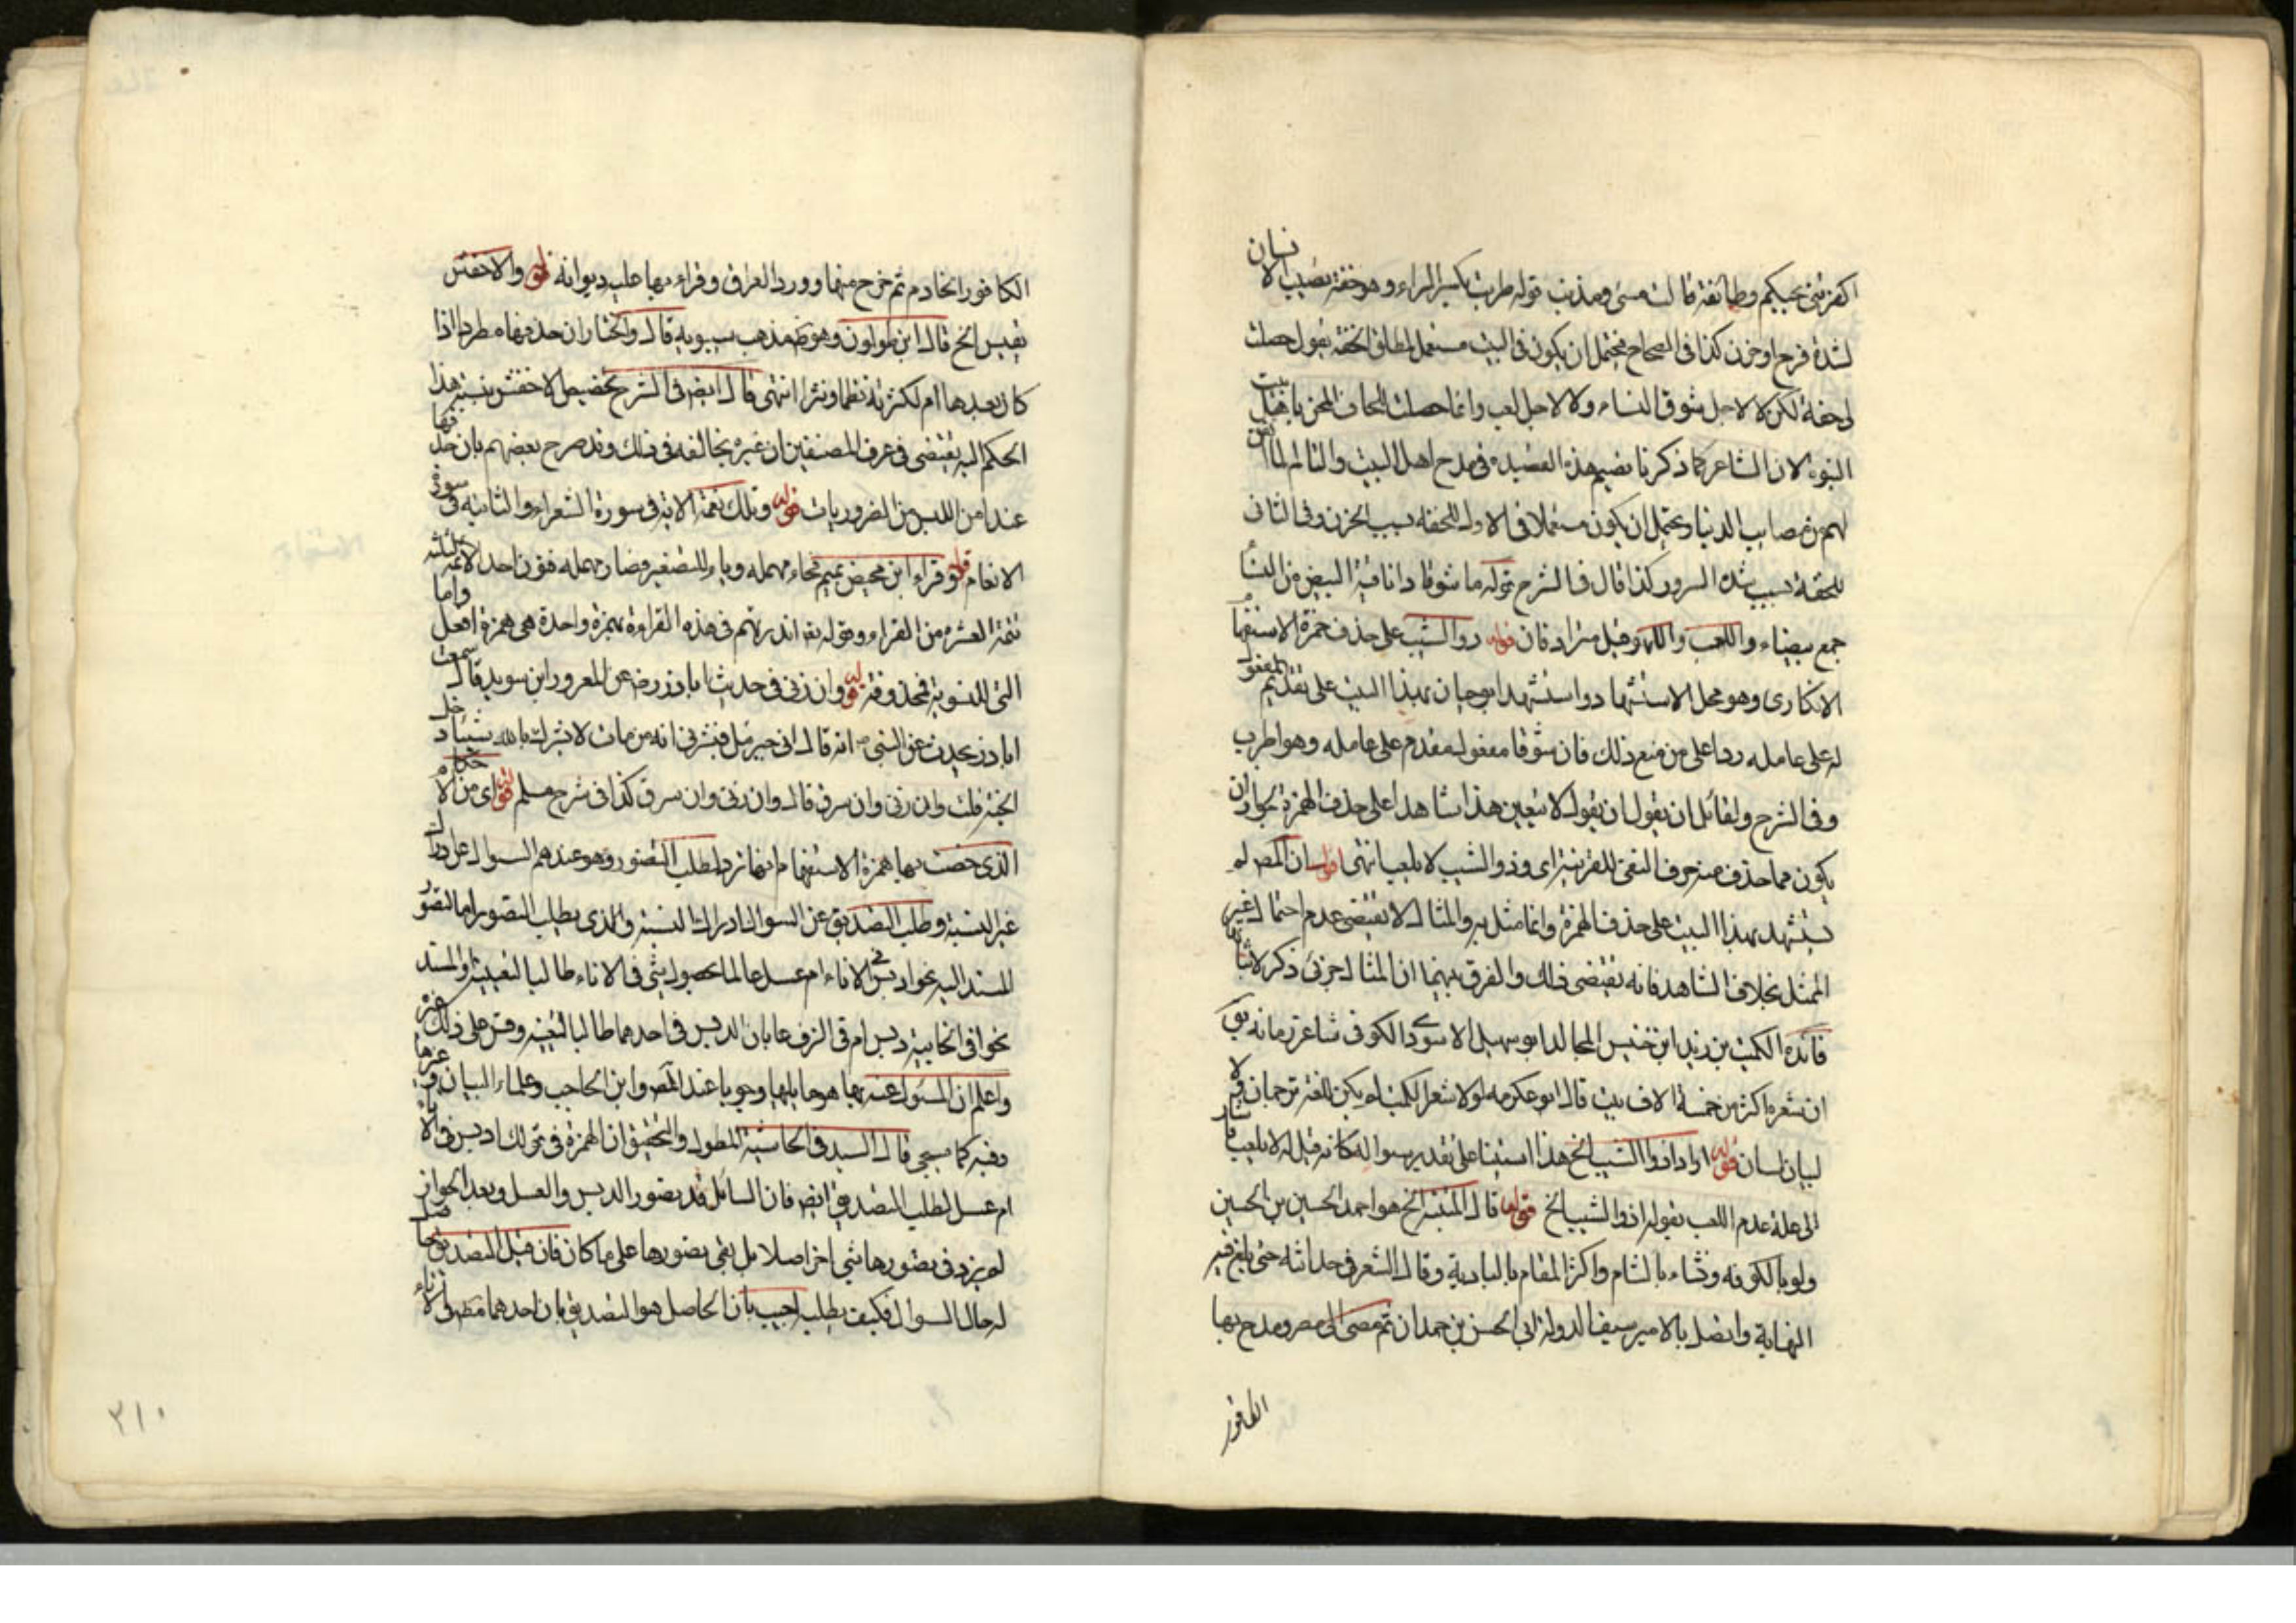 اكفرتنى بحبكم وطائفة قالت مسئ ومذنب قوله طربت بكسر الراء وهو خفة يصيب الانسان
لشدة فرح او حزن كذا فى الصحاح فيحتمل ان يكون فى البيت مستعمل لمطلق الخفة يقول حصلت
لى خفة لكن لا لاجل شوق النساء ولا لاجل لعب وانما حصلت
النبوة لان الشاعر كما ذكرنا هذه القصيدة فى مدح اهل البيت
لهم من مصايب الدنيا ويحتمل ان يكون مستعملا فى الاول للخفة بسبب الحزن وفى الثانى
للخفة بسبب شدة السرور كذا قال فى الشرح قوله ما شوقا البيض من النسا
جمع بيضاء واللعب واللهو وقيل مترادفان قوله وذو الشيب على حذف همزة الاستفها
الانكارى وهو محل الاستشهاد واستشهد ابو حيان بهذا البيت على تقديم المفعول
له على عامله ردا على من منع ذلك فان شوقا مفعول مقدم على عامله وهو اطرب
وفى الشرح ولقائل ان يقول ان يقول لا يتعين هذا شاهدا على حذف الهمزة لجواز ان
يكون مما حذف منه حرف النفى للقرينة اى وذو الشيب لا يلعب انتهى اقول ان المص لم
يستشهد بهذا البيت على حذف الهمزة وانما مثل به والمثال لا يقتضى عدم احتمال غير
الممثل بخلاف الشاهد فانه يقتضى ذلك والفرق بينهما ان المثال جزئى ذكر
فائدة الكميت بن زيد ابن خنيس المجالد ابو سهيل الاسودى الكوفى شاعر زمانه يق
ان شعره اكثر من خمسة الاف بيت قال ابو عكرمه لولا شعر الكميت لم يكن للغة ترجمان ولا
لبيان لسان قوله اراد اذو الشيب الخ هذا استينا على تقدير سوال كانه قيل له لا يلعب
الى علة عدم اللعب بقوله اذو الشيب الخ قوله قال المتنبى الخ هو احمد الحسين بن الحسين
ولد بالكوفه ونشاء بالشام واكثر المقام بالبادية وقال الشعر فى حداثته حتى بلغ فيه
النهاية واتصل بالامير سيف الدولة ابى الحسن بن حمدان ثم مضى الى مصر ومدح بها
الكافور
الكافور الخادم ثم خرج منها وورد العراق وقراء بها عليه ديوانه قوله والاخفش
يقيس الخ قال ابن طولون وهو ظ مذهب سيبويه قال والمختار ان حذفها مطرد اذا
كان بعدها ام لكثرته نظما ونثرا انتهى قال ايض فى الشرح تخصيص الاخفش بنسبة هذا
الحكم اليه يقتضى فى عرف المصنفين ان غيره يخالفه فى ذلك وقد صرح بعضهم بان حذفها
عند امن اللبس من الضروريات قوله وتلك نعمة الاية فى سورة الشعراء والثانية فى سورة
الانعام قوله وقراء ابن محيض بميم فحاء مهمله وياء للتصغير وضاد مهمله
تتمة العشرة من القراء وقوله تع انذرتهم فى هذه القراءة بهمزة واحدة هى همزة افعل واما
التى للتسوية فمحذوفة قوله وان زنى فى حديث ابا ذر رض عن المعرور ابن سويد قال سمعت
ابا ذر يحدث عن النبى ص انه قال اتى جبرئيل فبشرنى انه من مات لا يشرك بالله شيئا دخل
الجنة قلت وان زنى وان سرق قال وان زنى وان سرق كذا فى شرح مسلم قوله اى من الاحكام
الذى خصت بها همزة الاستفهام انها ترد لطلب التصور وهو عندهم السوال عن ادراك
غير النسبة وطلب التصديق عن السوال ادراك النسبة والذى يطلب التصور اما التصور
المسند اليه نحو ادبس فى الاناء ام عسل عالما بحصول شئ فى الاناء طالبا لتعيينه والمسند
نحو افى الخابية دبس ام فى الزق عالما بان الدبس فى احدهما طالبا لتعينه وقس على ذلك غيره
واعلم ان المسئول عنه بها هو ما يليها وجوبا عند المص وابن الحاجب وعلماء البيان
وفيه كما سيجى قال السيد فى الحاشية المطول والتحقيق ان الهمزة فى قولك ادبس فى الاناء
ام عسل لطلب التصديق ايض فان السائل قد تصور الدبس والعسل وبعد الجواب
لم يزد فى تصورها شئ اخر اصلا بل بقى تصورها على ما كان فان قيل التصديق حاصل
له حال السوال فكيف يطلب اجيب بان الحاصل هو التصديق بان احدهما
٣١٠